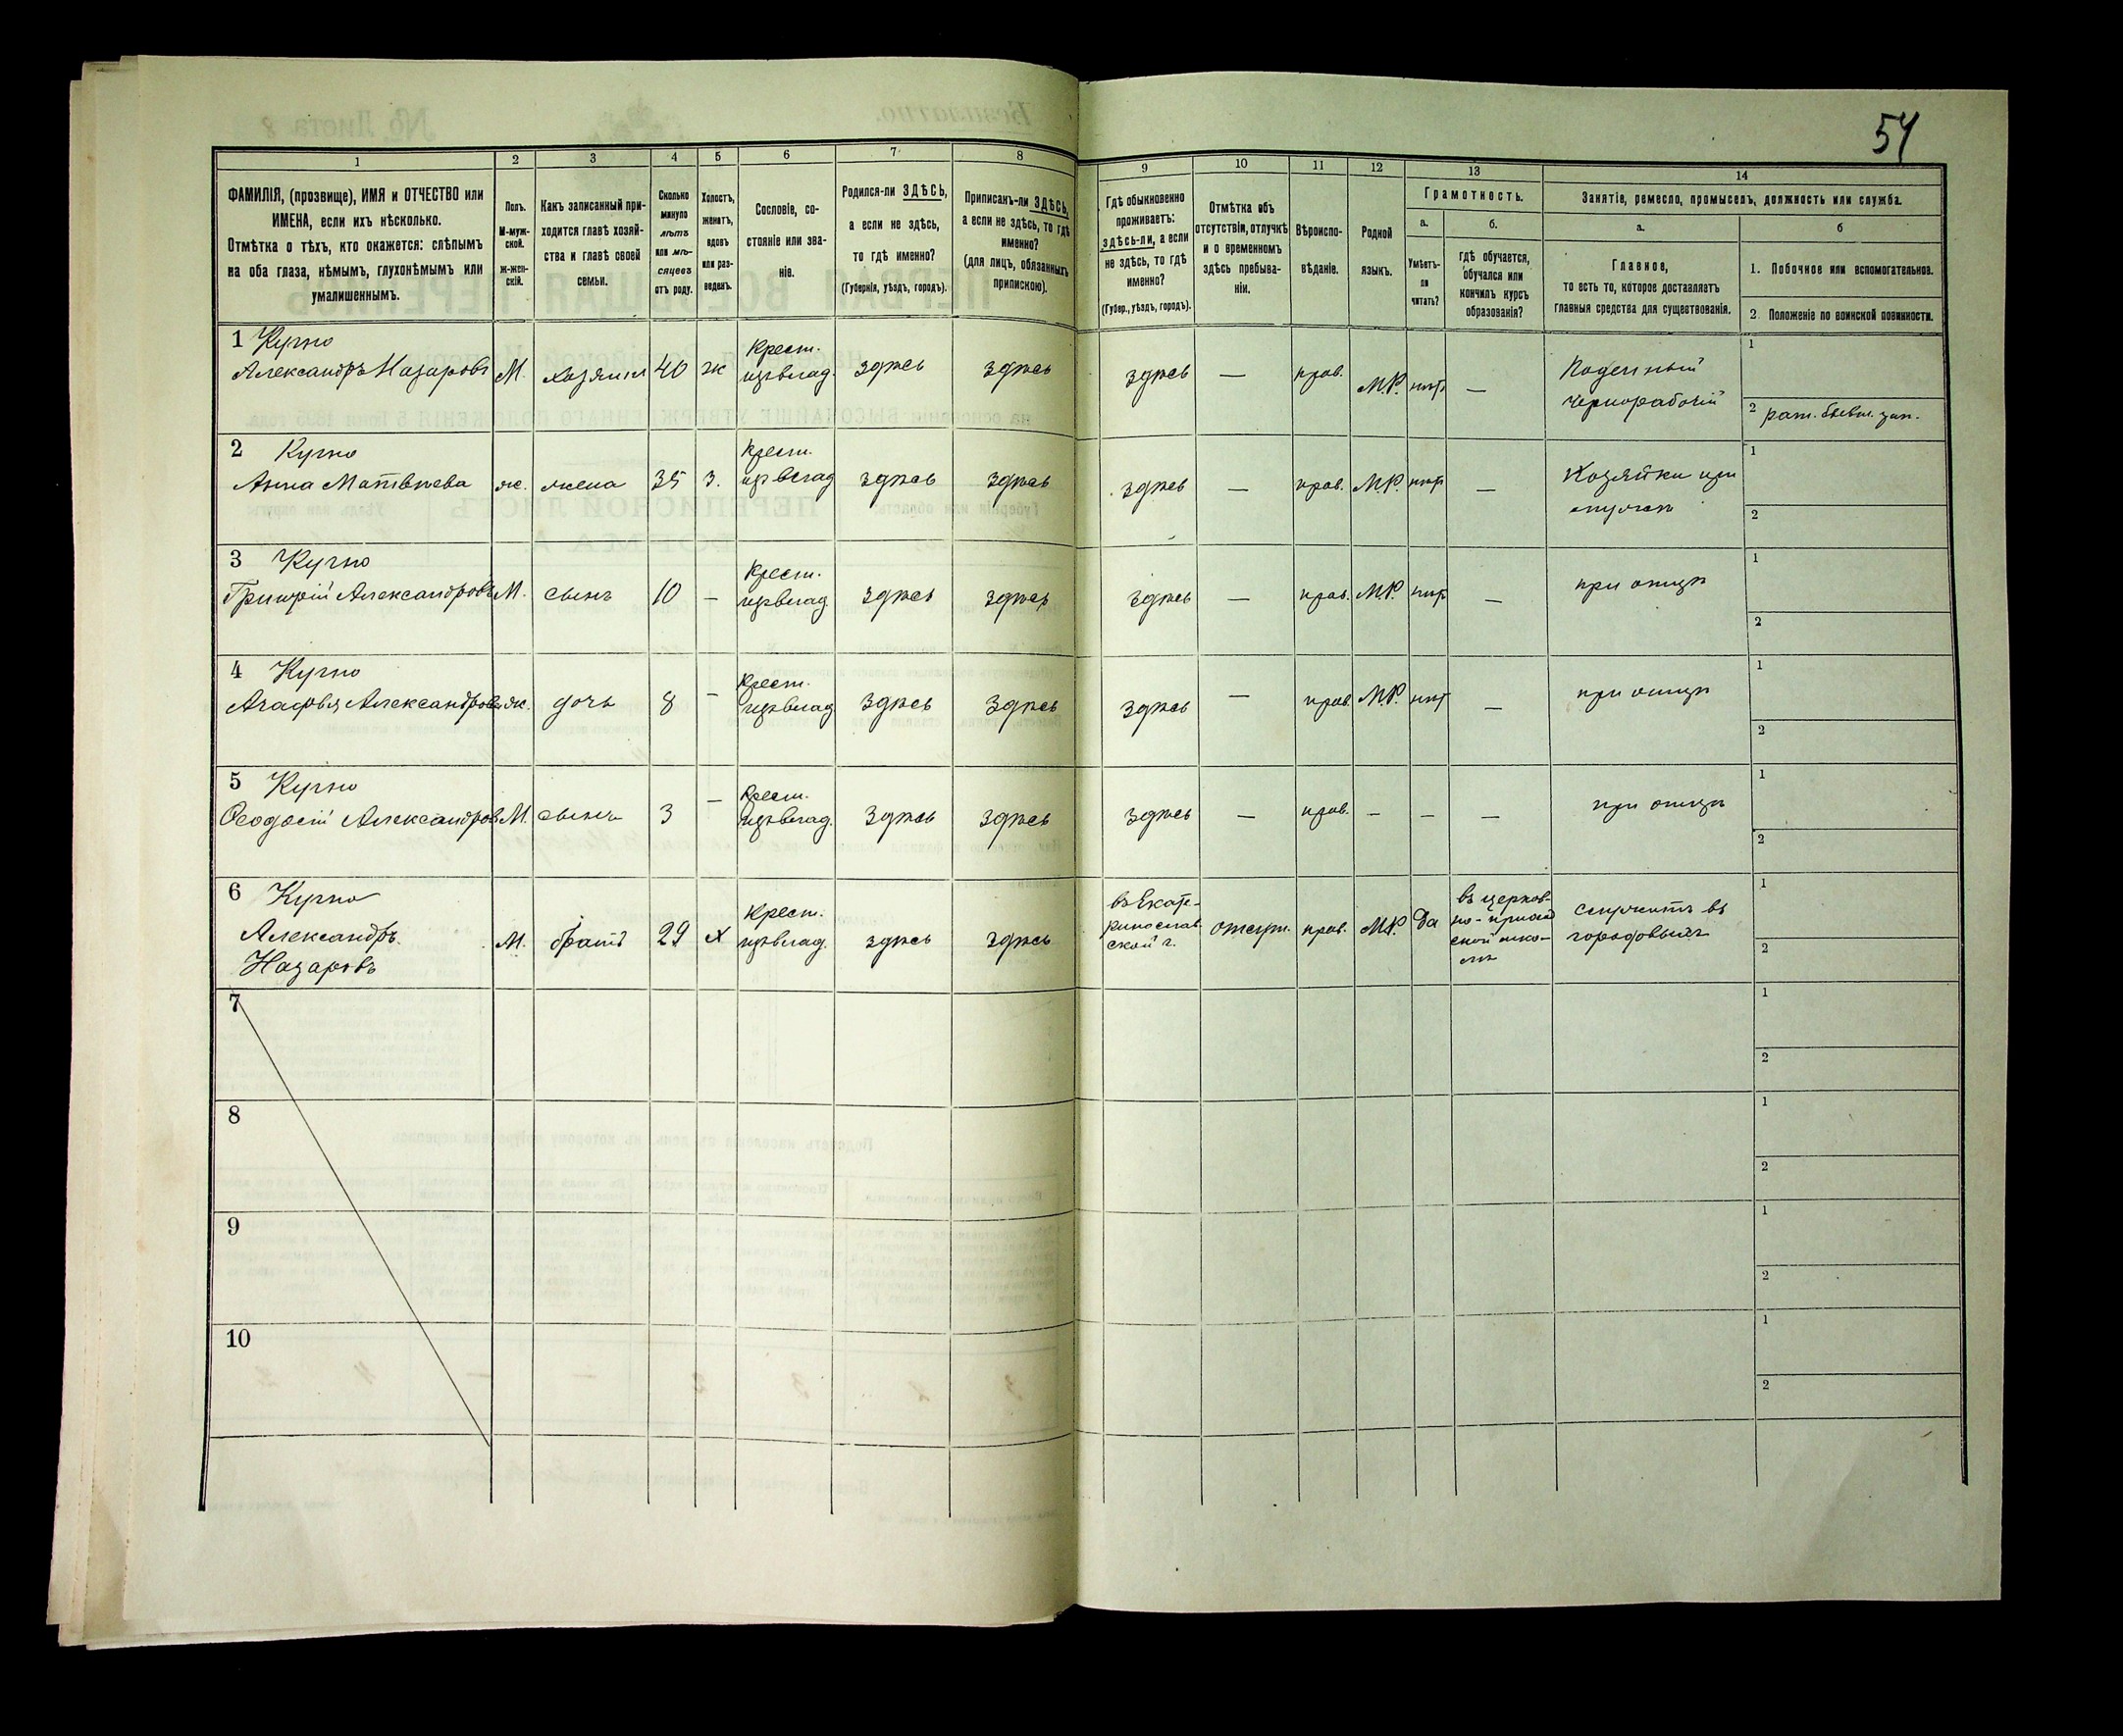 54
1 2 3 4 5 6 7 8 9 10 11 12 13 14
ФАМИЛІЯ, (прозвище), ИМЯ и ОТЧЕСТВО или
ИМЕНА, если ихъ нѣсколько.
Отмѣтка о тѣхъ, кто окажется: слѣпымъ
на оба глаза, нѣмымъ, глухонѣмымъ или
умалишеннымъ.
Полъ.
М-муж-
ской.
Ж-жен-
скій.
Какъ записанный при-
ходится главѣ хозяй-
ства и главѣ своей
семьи.
Сколько
минуло
лѣтъ
или мѣ-
сяцевъ
отъ роду.
Холостъ,
женатъ,
вдовъ
или раз-
веденъ.
Сословіе, со-
стояніе или зва-
ніе.
Родился-ли ЗДѢСЬ,
а если не здѣсь,
то гдѣ именно?
(Губернія, уѣздъ, городъ).
Приписанъ-ли ЗДѢСЬ,
а если не здѣсь, то гдѣ
именно?
(для лицъ, обязанныхъ
припискою).
Гдѣ обыкновенно
проживаетъ:
здѣсь-ли, а если
не здѣсь, то гдѣ
именно?
(Губер., уѣздъ, городъ).
Отмѣтка объ
отсутствіи, отлучкѣ
и о временномъ
здѣсь пребыва-
ніи.
Вѣроиспо-
вѣданіе.
Родной
языкъ.
Грамотность.
а. б.
Умѣетъ-
ли
читать?
гдѣ обучается,
обучался или
кончилъ курсъ
образованія?
Занятіе, ремесло, промыселъ, должность или служба.
а. б
Главное,
то есть то, которое доставляетъ
главныя средства для существованія.
1. Побочное или вспомогательное.
2. Положеніе по воинской повинности.
1 Кучно
Александръ Назаровъ М. хозяинъ 40 ж Крест. здѣсь здѣсь здѣсь — прав. М.Р. нѣт — Поденный
чернорабочій
1
2
2 Кучно
Анна Матвѣева ж. жена 35 з. Крест. здѣсь здѣсь здѣсь — прав. М.Р. нѣт — Хозяйка при
1
2
3 Кучно
Григорій Александровъ М. сынъ 10 — Крест. здѣсь здѣсь здѣсь — прав. М.Р. нѣт — при отцѣ
1
2
4 Кучно
Агафья Александрова ж. дочь 8 — Крест. здѣсь здѣсь здѣсь — прав. М.Р. нѣт — при отцѣ
1
2
5 Кучно
Ѳеодосій Александров М. сынъ 3 — Крест. здѣсь здѣсь здѣсь — прав. — — — при отцѣ
1
2
6 Кучно
Александръ
Назаровъ
М. братъ 29 х Крест. здѣсь здѣсь
въ Екате-
ринослав-
ской г.
отсут. прав. М.Р. Да
въ церков-
но-приход
ской шко-
лѣ
служитъ въ
городовыхъ
1
2
7
1
2
8
1
2
9
1
2
10
1
2